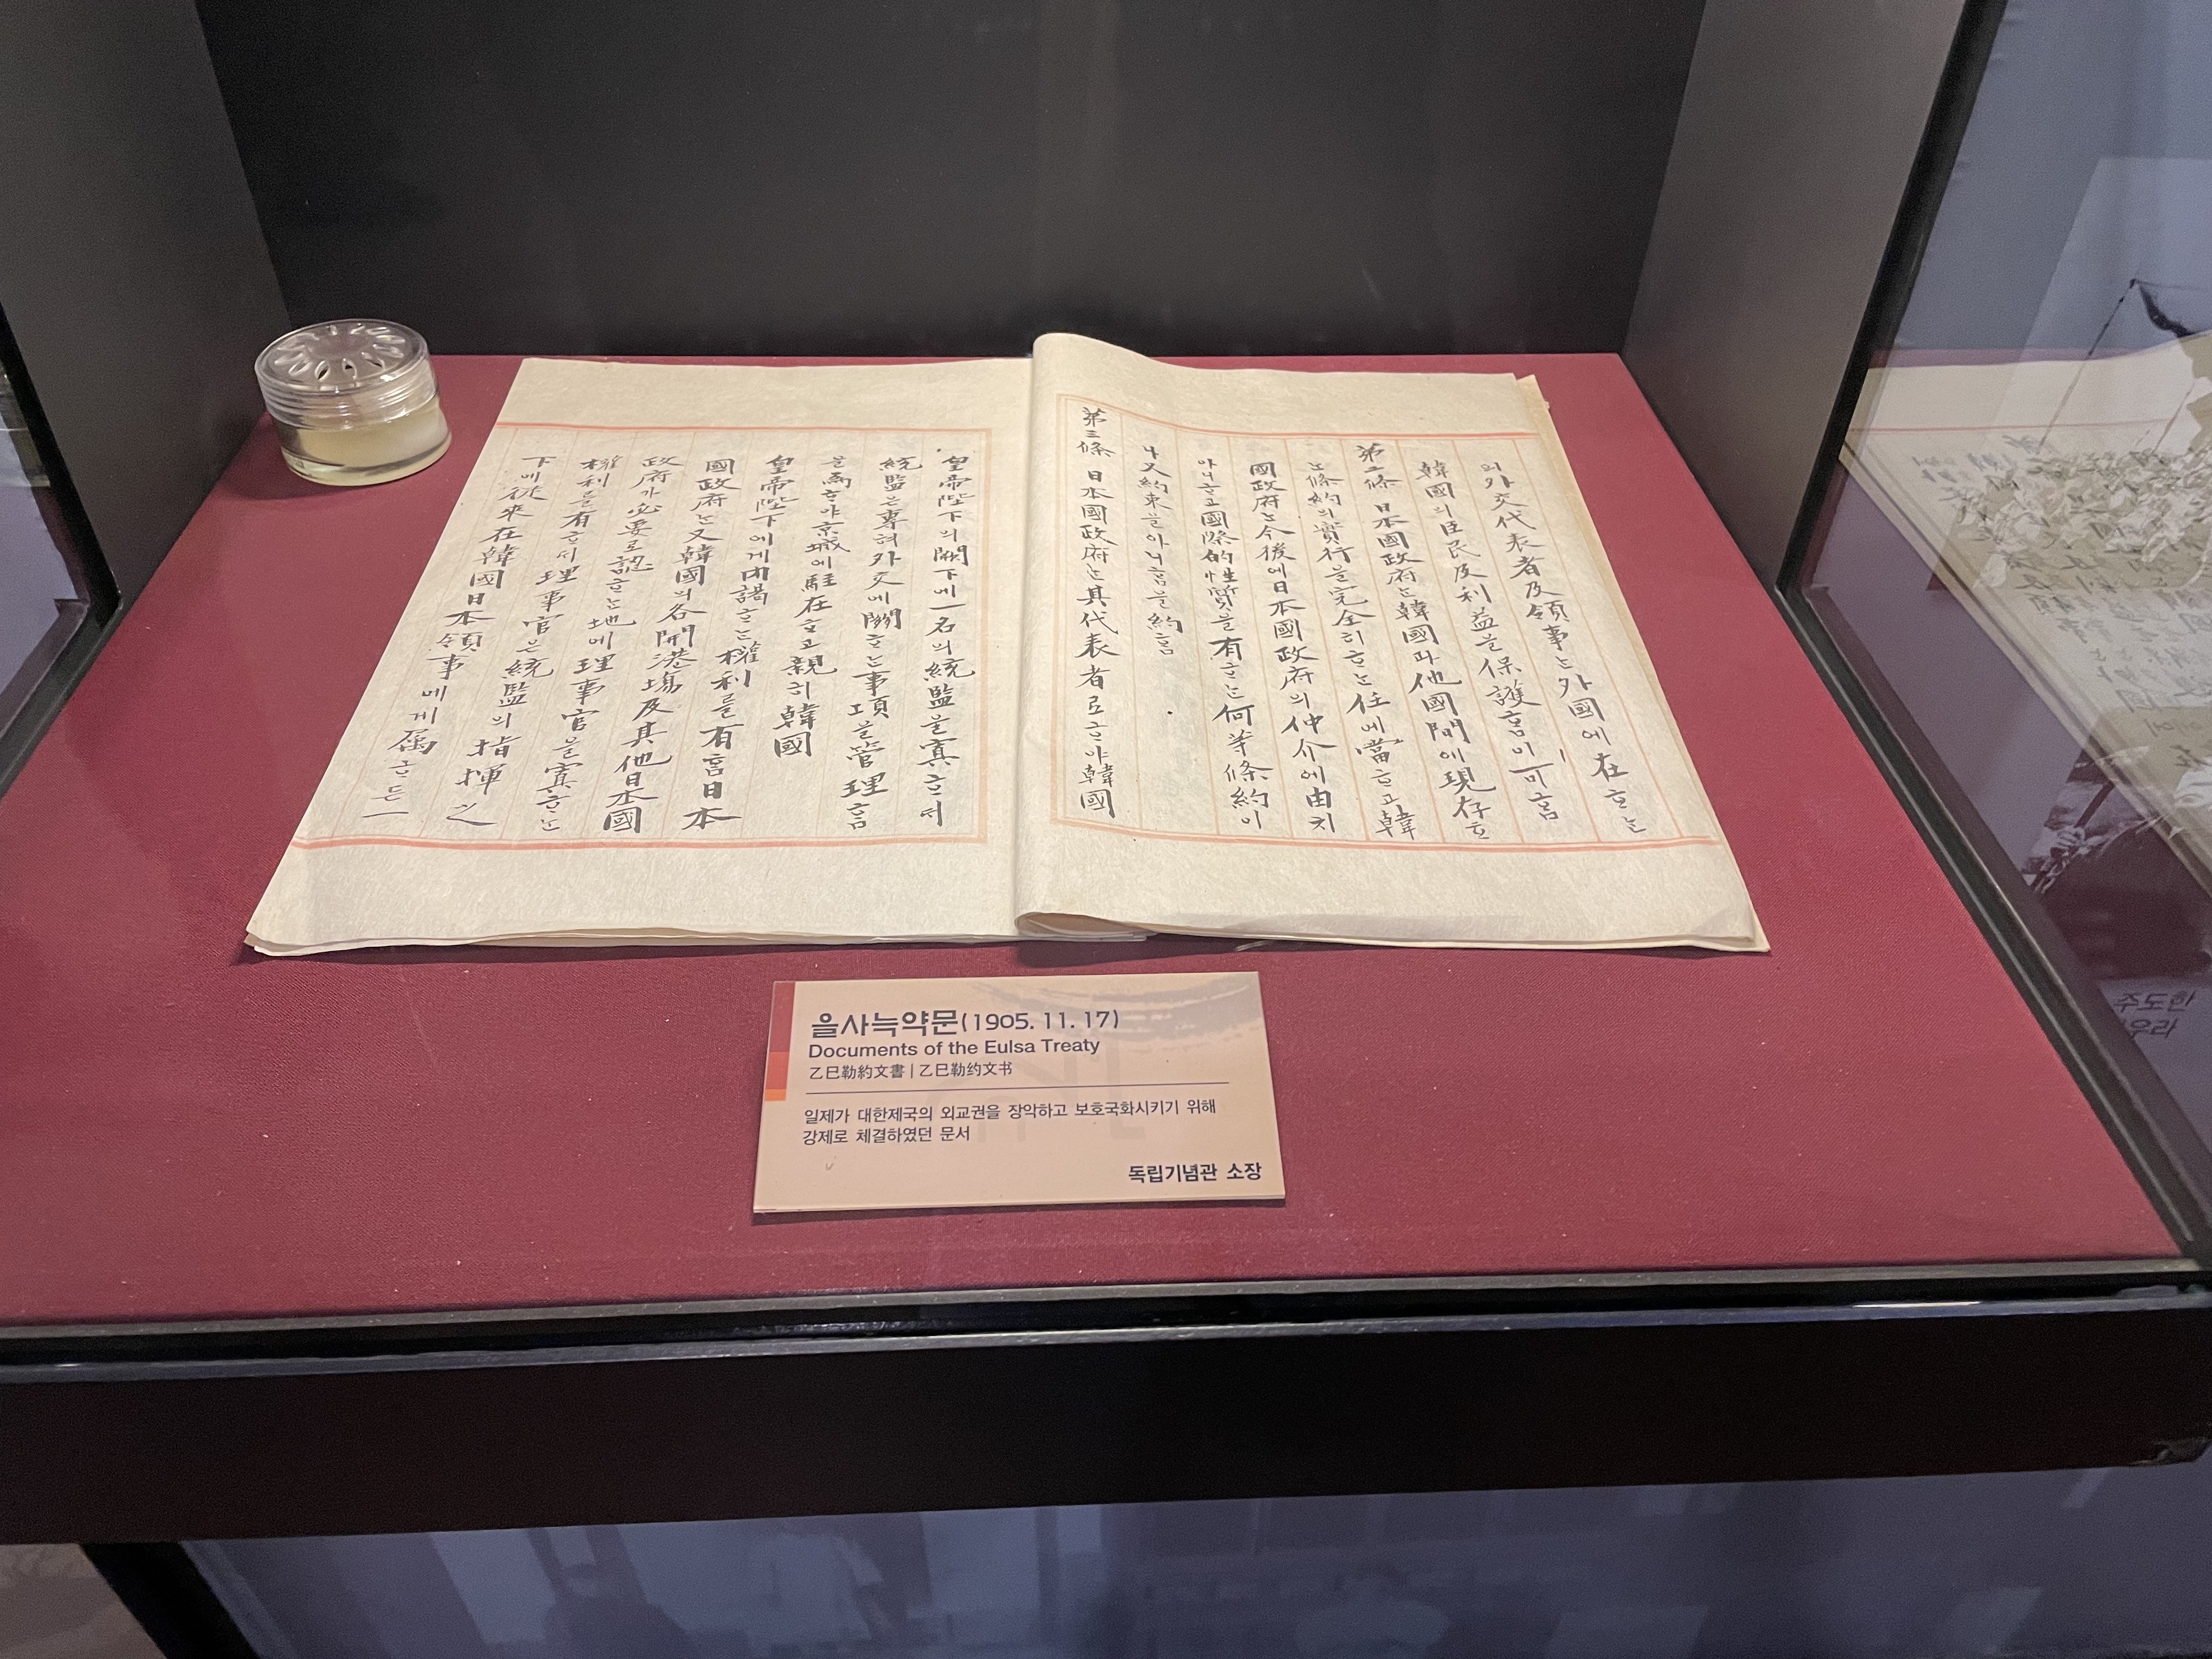 의外交代表者及領事는外國에在ᄒᆞ는
韓國의臣民及利益을保護홈이可홈
第二條 日本國政府는韓國과他國間에現存ᄒᆞ
는條約의實行을完全히ᄒᆞ는任에當ᄒᆞ고韓
國政府는今後에日本國政府의仲介에由치
아니ᄒᆞ고國際的性質을有ᄒᆞ는何等條約이
나又約束을아니홈을約홈
第三條 日本國政府는其代表者로ᄒᆞ야韓國
皇帝陛下의闕下에一名의統監을寘ᄒᆞ서
統監은專혀外交에關ᄒᆞ는事項을管理홈
을爲ᄒᆞ야京城에駐在ᄒᆞ고親히韓國
皇帝陛下에게內謁ᄒᆞ는權利를有홈日本
國政府는又韓國의各開港塲及其他日本國
政府가必要로認ᄒᆞ는地에理事官을寘ᄒᆞ는
權利를有ᄒᆞ서理事官은統監의指揮之
下에從來在韓國日本領事에게屬ᄒᆞ든一
을사늑약문(1905. 11. 17)
Documents of the Eulsa Treaty
乙巳勒約文書 | 乙巳勒约文书
일제가 대한제국의 외교권을 장악하고 보호국화시키기 위해
강제로 체결하였던 문서
독립기념관 소장
주도한
우라